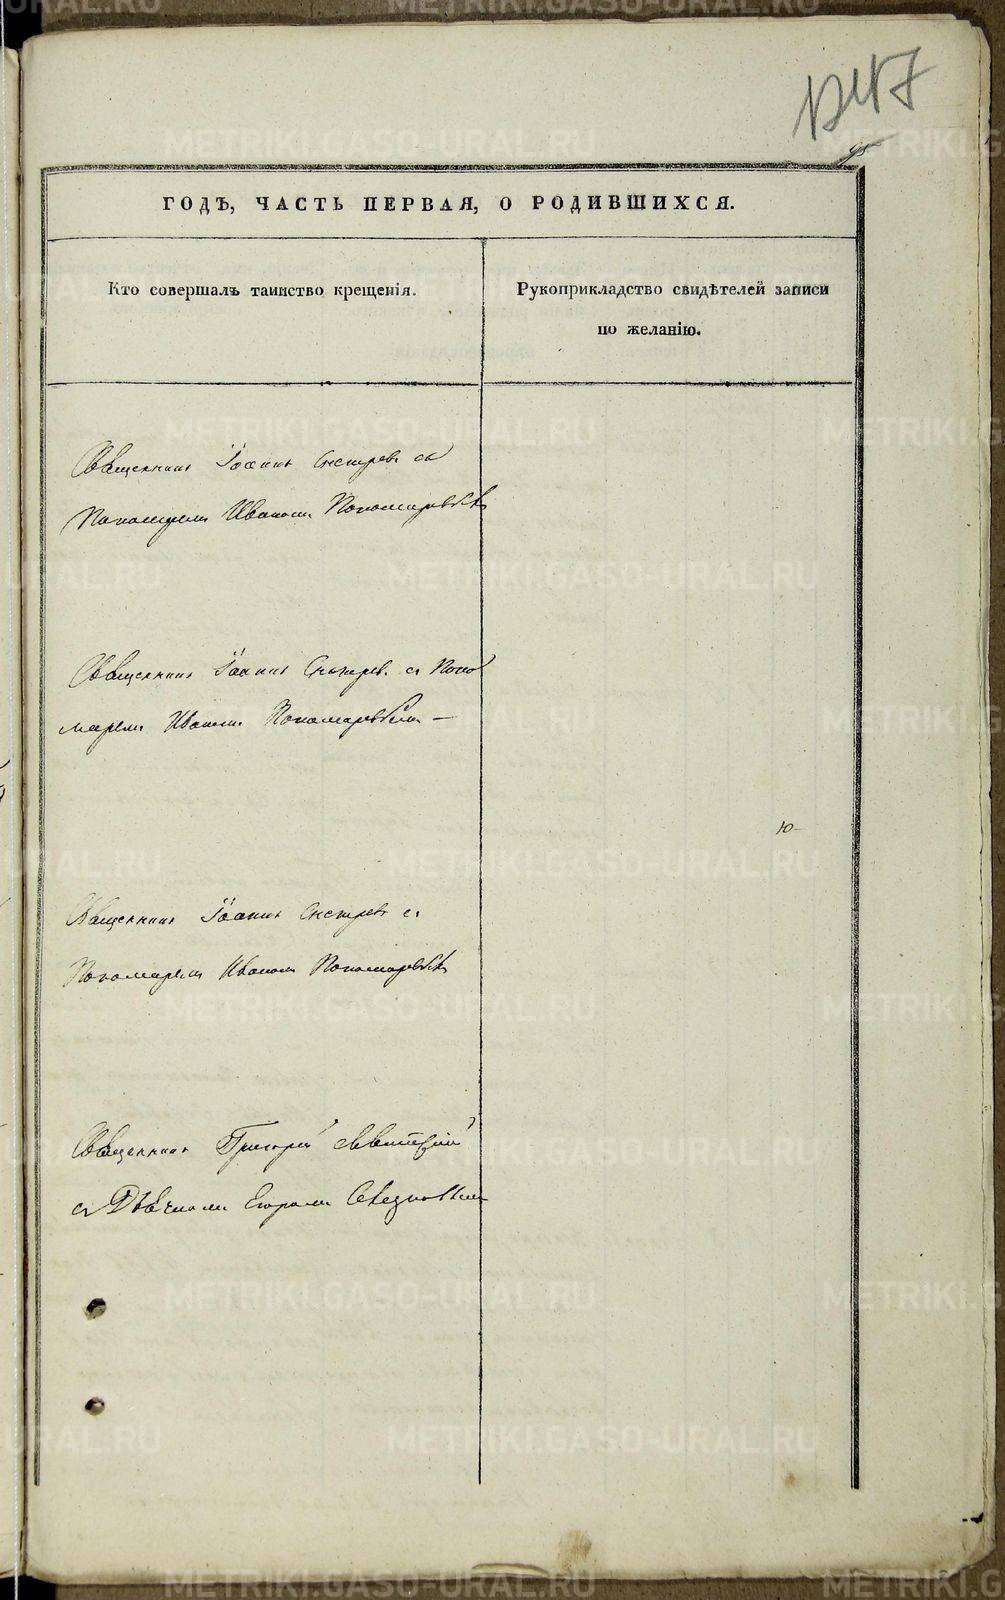 ГОДЪ, ЧАСТЬ ПЕРВАЯ, О РОДИВШИХСЯ.
Кто совершалъ таинство крещенія.
Рукоприкладство свидѣтелей записи
по желанію.
Священникъ Іоаннъ съ
Пономаремъ Иваномъ Пономаревымъ
Священникъ Іоаннъ съ Поно
маремъ Иваномъ Пономаревымъ —
Священникъ Іоаннъ съ
Пономаремъ Иваномъ Пономаревымъ
Священникъ Григорій
съ Дьячкомъ Егоромъ
METRIKI.GASO-URAL.RU